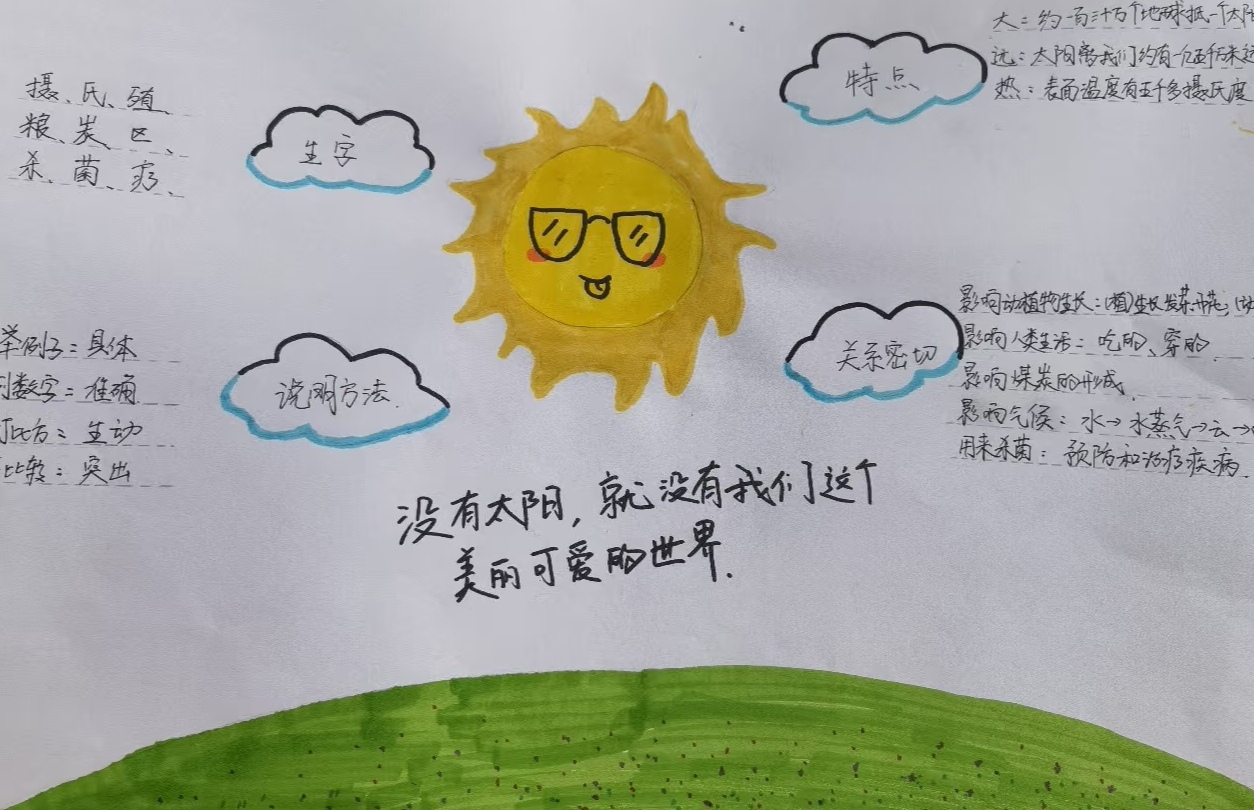 生字
摄、氏、殖、
粮、炭、区、
杀、菌、疗、
特点
大：约一百三十万个地球抵一个太阳
远：太阳离我们约有一亿五千万米远
热：表面温度有五千多摄氏度
说明方法
举例子：具体
列数字：准确
打比方：生动
比较：突出
关系密切
影响动植物生长：(植)生长发芽开花；(动
影响人类生活：吃的、穿的
影响煤炭的形成
影响气候：水→水蒸气→云→
用来杀菌：预防和治疗疾病
没有太阳，就没有我们这个
美丽可爱的世界.